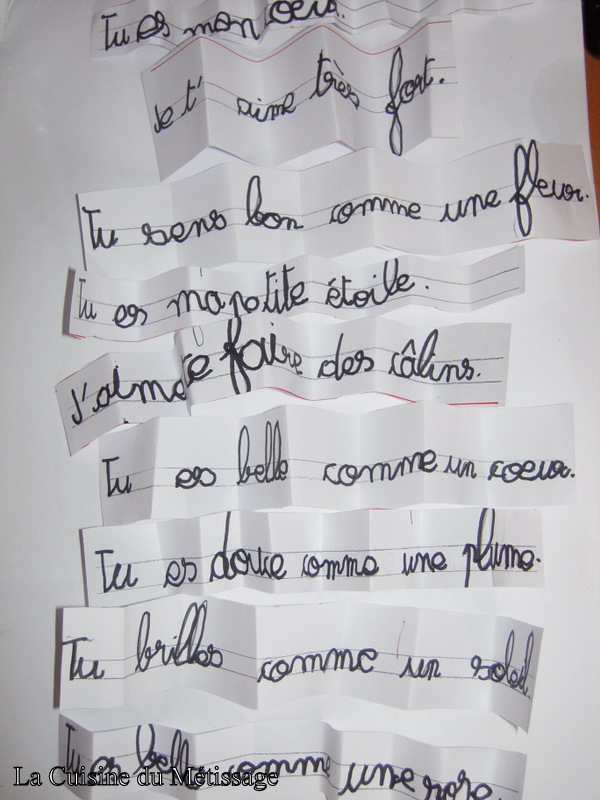 Tu es mon
Je t'aime très fort.
Tu sens bon comme une fleur.
Tu es ma petite étoile.
J'aime te faire des câlins.
Tu es belle comme un coeur.
Tu es douce comme une plume.
Tu brilles comme un soleil.
Tu es belle comme une rose.
La Cuisine du Métissage